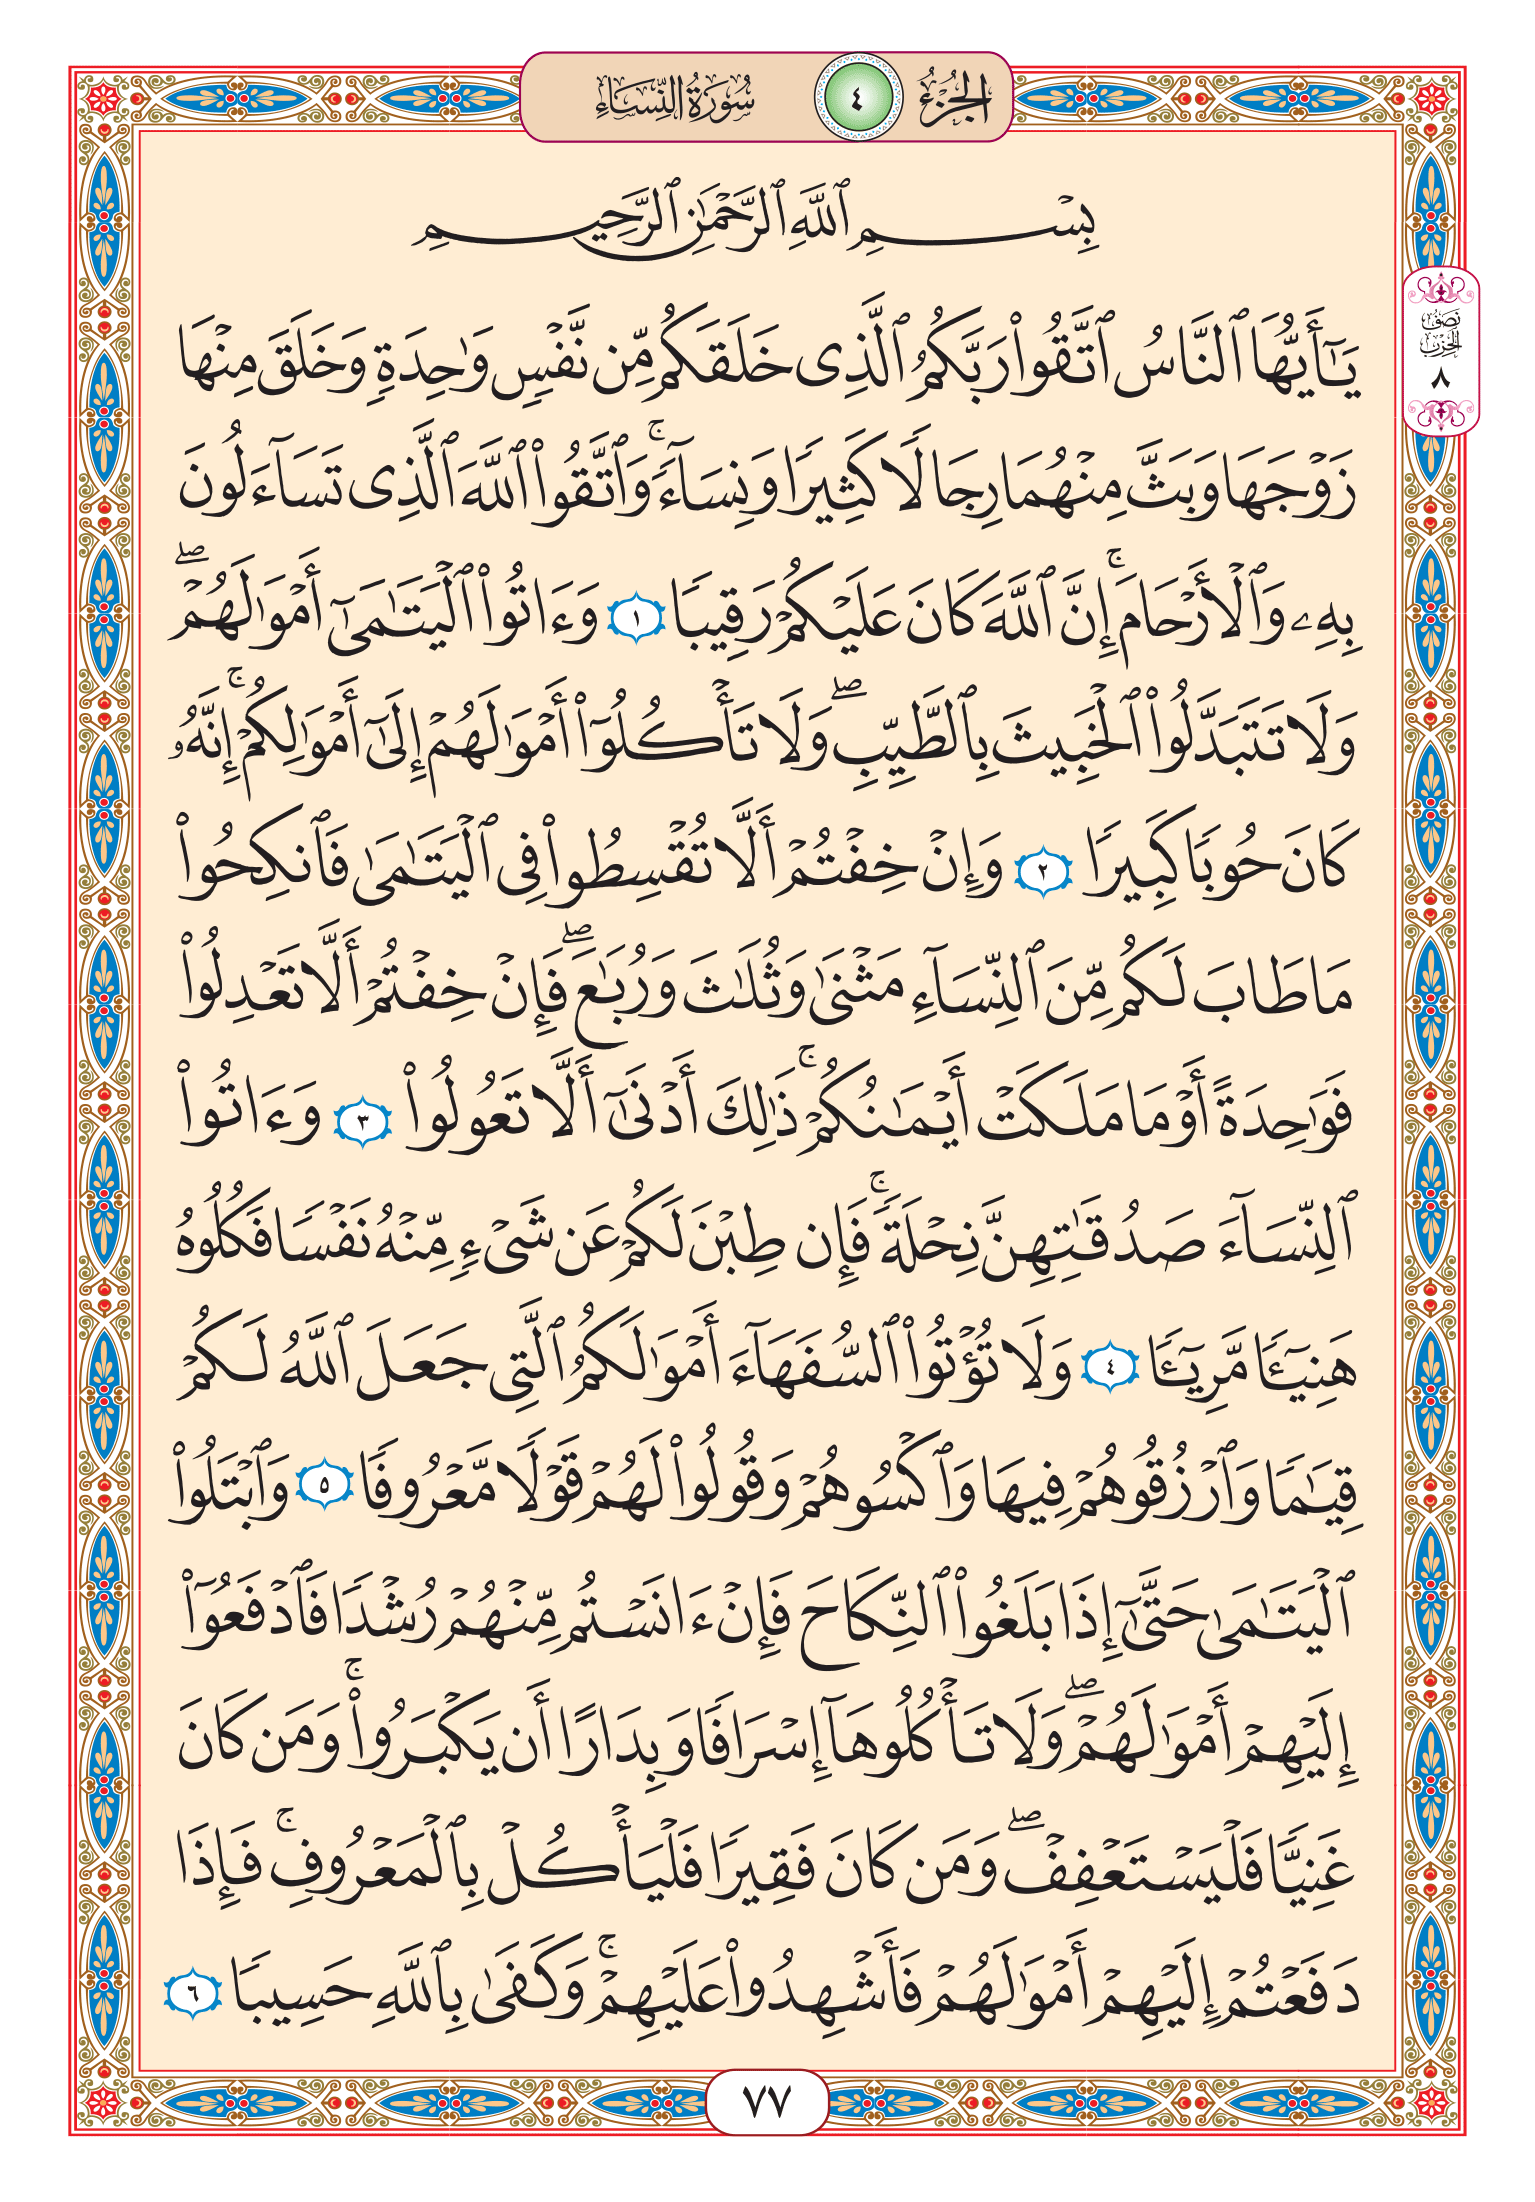 الجزء ٤ سورة النساء
بِسْمِ ٱللَّهِ ٱلرَّحْمَٰنِ ٱلرَّحِيمِ
يَٰٓأَيُّهَا ٱلنَّاسُ ٱتَّقُوا۟ رَبَّكُمُ ٱلَّذِى خَلَقَكُم مِّن نَّفْسٍ وَٰحِدَةٍ وَخَلَقَ مِنْهَا
زَوْجَهَا وَبَثَّ مِنْهُمَا رِجَالًا كَثِيرًا وَنِسَآءً ۚ وَٱتَّقُوا۟ ٱللَّهَ ٱلَّذِى تَسَآءَلُونَ
بِهِۦ وَٱلْأَرْحَامَ ۚ إِنَّ ٱللَّهَ كَانَ عَلَيْكُمْ رَقِيبًا ١ وَءَاتُوا۟ ٱلْيَتَٰمَىٰٓ أَمْوَٰلَهُمْ ۖ
وَلَا تَتَبَدَّلُوا۟ ٱلْخَبِيثَ بِٱلطَّيِّبِ ۖ وَلَا تَأْكُلُوٓا۟ أَمْوَٰلَهُمْ إِلَىٰٓ أَمْوَٰلِكُمْ ۚ إِنَّهُۥ
كَانَ حُوبًا كَبِيرًا ٢ وَإِنْ خِفْتُمْ أَلَّا تُقْسِطُوا۟ فِى ٱلْيَتَٰمَىٰ فَٱنكِحُوا۟
مَا طَابَ لَكُم مِّنَ ٱلنِّسَآءِ مَثْنَىٰ وَثُلَٰثَ وَرُبَٰعَ ۖ فَإِنْ خِفْتُمْ أَلَّا تَعْدِلُوا۟
فَوَٰحِدَةً أَوْ مَا مَلَكَتْ أَيْمَٰنُكُمْ ۚ ذَٰلِكَ أَدْنَىٰٓ أَلَّا تَعُولُوا۟ ٣ وَءَاتُوا۟
ٱلنِّسَآءَ صَدُقَٰتِهِنَّ نِحْلَةً ۚ فَإِن طِبْنَ لَكُمْ عَن شَىْءٍ مِّنْهُ نَفْسًا فَكُلُوهُ
هَنِيٓـًٔا مَّرِيٓـًٔا ٤ وَلَا تُؤْتُوا۟ ٱلسُّفَهَآءَ أَمْوَٰلَكُمُ ٱلَّتِى جَعَلَ ٱللَّهُ لَكُمْ
قِيَٰمًا وَٱرْزُقُوهُمْ فِيهَا وَٱكْسُوهُمْ وَقُولُوا۟ لَهُمْ قَوْلًا مَّعْرُوفًا ٥ وَٱبْتَلُوا۟
ٱلْيَتَٰمَىٰ حَتَّىٰٓ إِذَا بَلَغُوا۟ ٱلنِّكَاحَ فَإِنْ ءَانَسْتُم مِّنْهُمْ رُشْدًا فَٱدْفَعُوٓا۟
إِلَيْهِمْ أَمْوَٰلَهُمْ ۖ وَلَا تَأْكُلُوهَآ إِسْرَافًا وَبِدَارًا أَن يَكْبَرُوا۟ ۚ وَمَن كَانَ
غَنِيًّا فَلْيَسْتَعْفِفْ ۖ وَمَن كَانَ فَقِيرًا فَلْيَأْكُلْ بِٱلْمَعْرُوفِ ۚ فَإِذَا
دَفَعْتُمْ إِلَيْهِمْ أَمْوَٰلَهُمْ فَأَشْهِدُوا۟ عَلَيْهِمْ ۚ وَكَفَىٰ بِٱللَّهِ حَسِيبًا ٦
نصف
الحزب
٨
٧٧